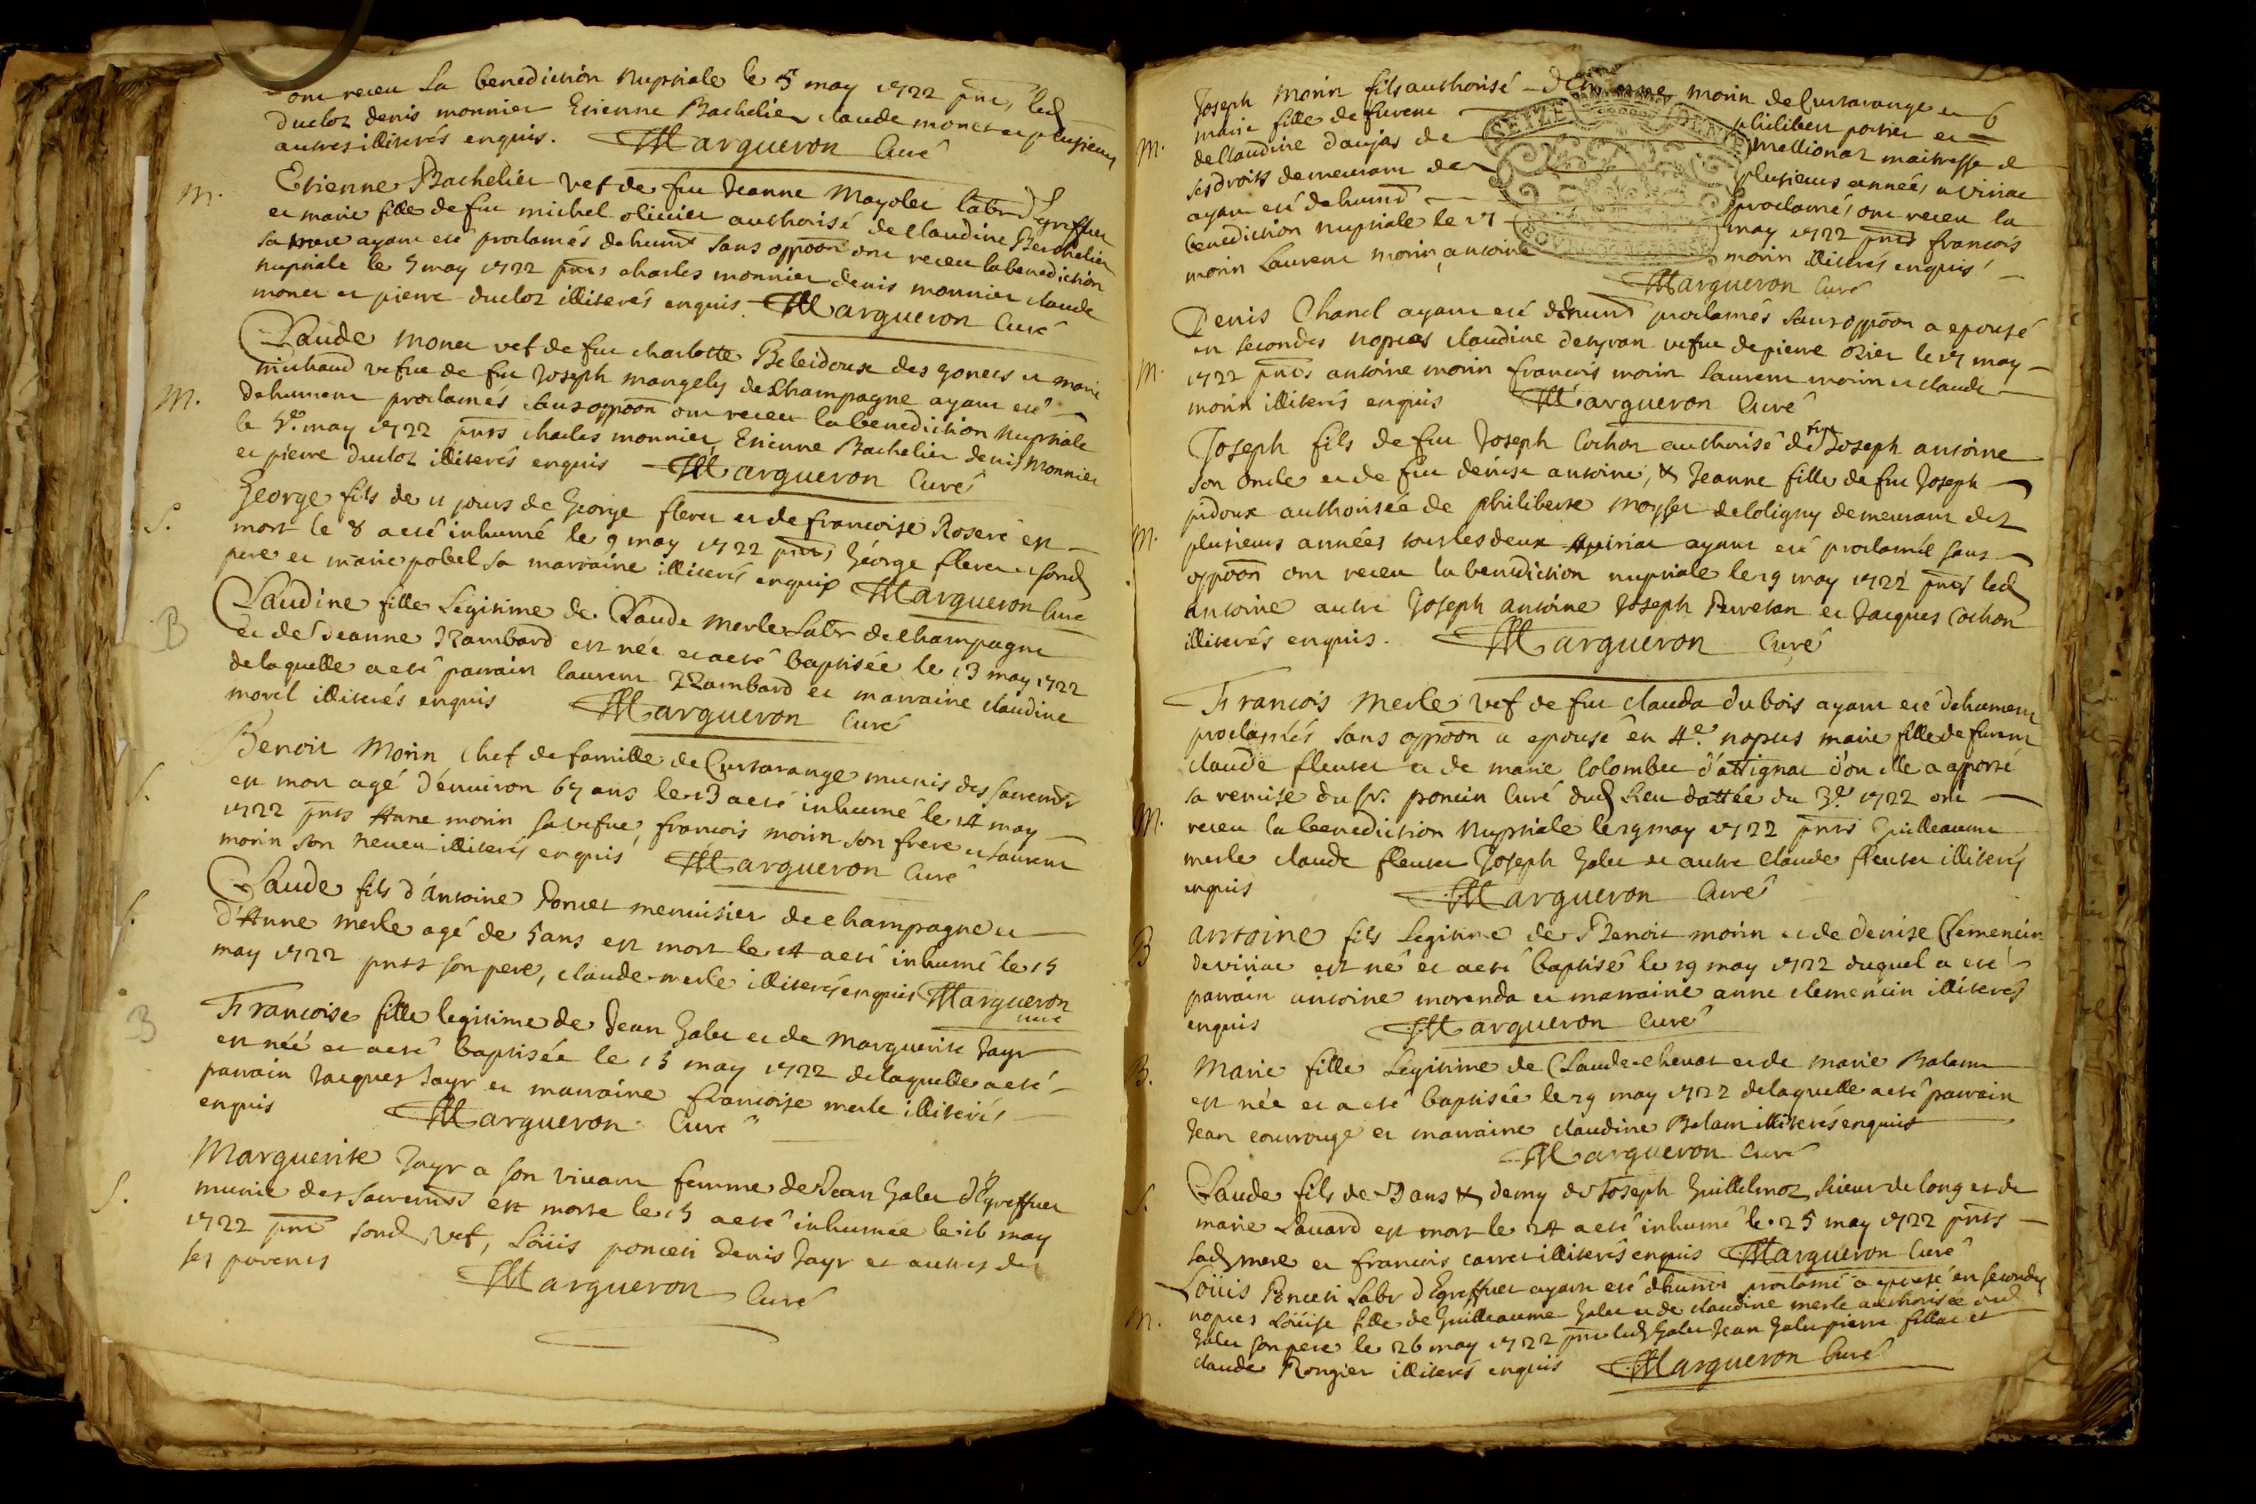 ont receu la benediction nuptiale le 5 may 1722 pnts led
duclos denis monnier Etienne Bachelier claude monet et plusieurs
autres illiterés enquis. Margueron Curé
M.
Etienne Bachelier vef de fue Jeanne Mayolet labr d'Egreffuer
et marie fille de feu michel olivier authorisé de claudine Berthelier
sa mere ayant eté proclamés dehumt sans oppoon ont receu la benediction
nuptiale le 5 may 1722 pnts charles monnier denis monnier claude
monet et pierre duclos illiterés enquis. Margueron Curé
M.
Claude Monet vef de fue charlotte Beleidoux des gonets et marie
michaud vefue de feu Joseph mangely de champagne ayant eté
dehument proclamés sans oppoon ont receu la benediction nuptiale
le 5e may 1722 pnts charles monnier, Etienne Bachelier denis monnier
et pierre duclos illiterés enquis Margueron Curé
S.
George fils de 11 jours de George fleret et de francoise Roseré est
mort le 8 a eté inhumé le 9 may 1722 pnts George fleret sond
pere et marie pobel sa marraine illiterés enquis Margueron Curé
B
Claudine fille Legitime de Claude Merle labr de champagne
et de Jeanne Rambard est née et a eté baptisée le 13 may 1722
de laquelle a eté parrain laurent Rambard et marraine claudine
morel illiterés enquis Margueron Curé
S.
Benoit Morin chef de famille de Curtarange munis des sacremts
est mort agé d'enuiron 65 ans le 13 a eté inhumé le 14 may
1722 pnts Anne morin sa vefue, francois morin son frere et laurent
morin son neueu illiterés enquis Margueron Curé
S.
Claude fils d'Antoine Poncet menuisier de champagne et
d'Anne Merle agé de 5 ans est mort le 14 a eté inhumé le 15
may 1722 pnts son pere, claude merle illiterés enquis Margueron
curé
B
Francoise fille legitime de Jean Galet et de Marguerite Jayr
est née et a eté baptisée le 15 may 1722 de laquelle a eté
parrain Jacques Jayr et marraine francoise merle illiterés
enquis Margueron Curé
S.
Marguerite Jayr a son viuant femme de Jean Galet d'Egreffuer
munie des sacremts est morte le 15 a eté inhumée le 16 may
1722 pnt sond vef, Loüis ponceti denis Jayr et autres de
ses parents
Margueron Curé
6
Joseph Morin fils authorisé d'Etienne morin de Curtarange et
M.
marie fille de furent philibert poirier et
de Claudine daujas de mellionas maitresse de
ses droits demeurant de plusieurs années a viriac
ayant eté dehumt proclamés ont receu la
benediction nuptiale le 15 may 1722 pnts francois
morin Laurent morin, antoine morin illiterés enquis
Margueron Curé
SEIZE DENIE
M.
Denis Chanel ayant eté dehumt proclamés sans oppoon a epousé
en secondes nopces claudine desyran vefue de pierre ozier le 15 may
1722 pnts antoine morin francois morin laurent morin et claude
morin illiterés enquis Margueron Curé
Joseph fils de feu Joseph Cochon authorisé de Joseph antoine
son oncle et de fue denise antoine, & Jeanne fille de feu Joseph
pidoux authorisée de philiberte moysset de loligny demeurant dez
M.
plusieurs années tous les deux a viriac ayant eté proclamés sans
oppoon ont receu la benediction nuptiale le 19 may 1722 pnts led
antoine autre Joseph antoine Joseph Perretan et Jacques Cochon
illiterés enquis. Margueron Curé
Francois Merle vef de fue clauda dubois ayant eté dehument
proclamés sans oppoon a epousé en 4e. nopces marie fille de furent
claude fleuret et de marie Colombet d'attignat d'ou elle a apporté
sa remise du Sr. poncin Curé dud Lieu dattée du 3e 1722 ont
M.
receu la benediction nuptiale le 19 may 1722 pnts Guilleaume
merle claude fleuret Joseph Galet et autre claude fleuret illiterés
enquis Margueron Curé
B
antoine fils Legitime de Benoit morin et de denise Clemencin
de viriac est né et a eté baptisé le 19 may 1722 duquel a eté
parrain antoine morenda et marraine anne clemencin illiterés
enquis Margueron Curé
B.
Marie fille Legitime de Claude chenat et de marie Balam
est née et a eté baptisée le 19 may 1722 de laquelle a eté parrain
Jean courrouge et marraine claudine Balam illiterés enquis
Margueron Curé
S.
Claude fils de 3 ans & demy de Joseph Guillelmoz scieur de long et de
marie Lauard est mort le 24 a eté inhumé le 25 may 1722 pnts
sad mere et francois carret illiterés enquis Margueron Curé
M.
Loüis Ponceti Labr d'Egreffuer ayant eté dehumt proclamé a epousé en secondes
nopces Loüise fille de Guilleaume Galet et de claudine merle authorisée dud
Galet son pere le 26 may 1722 pnts led Galet Jean Galet pierre fillat et
claude Rongier illiterés enquis Margueron Curé